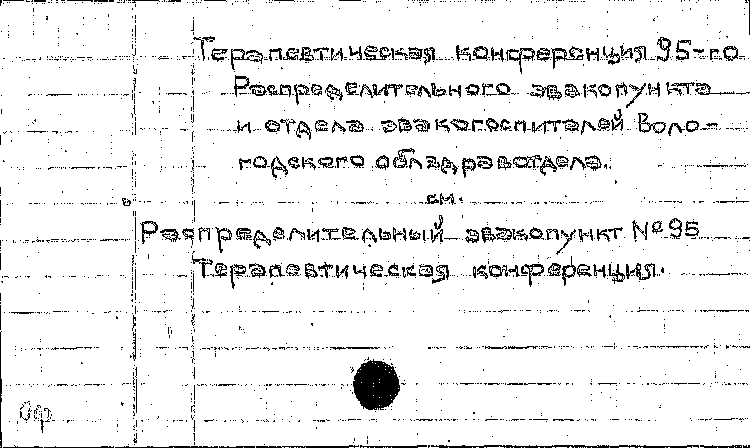 Терапевтическая конференция 95-го
Распределительного эвакопункта
и отдела эвакогоспиталей Воло-
годского облздравотдела.
см.
Распределительный эвакопункт № 95
Терапевтическая конференция.